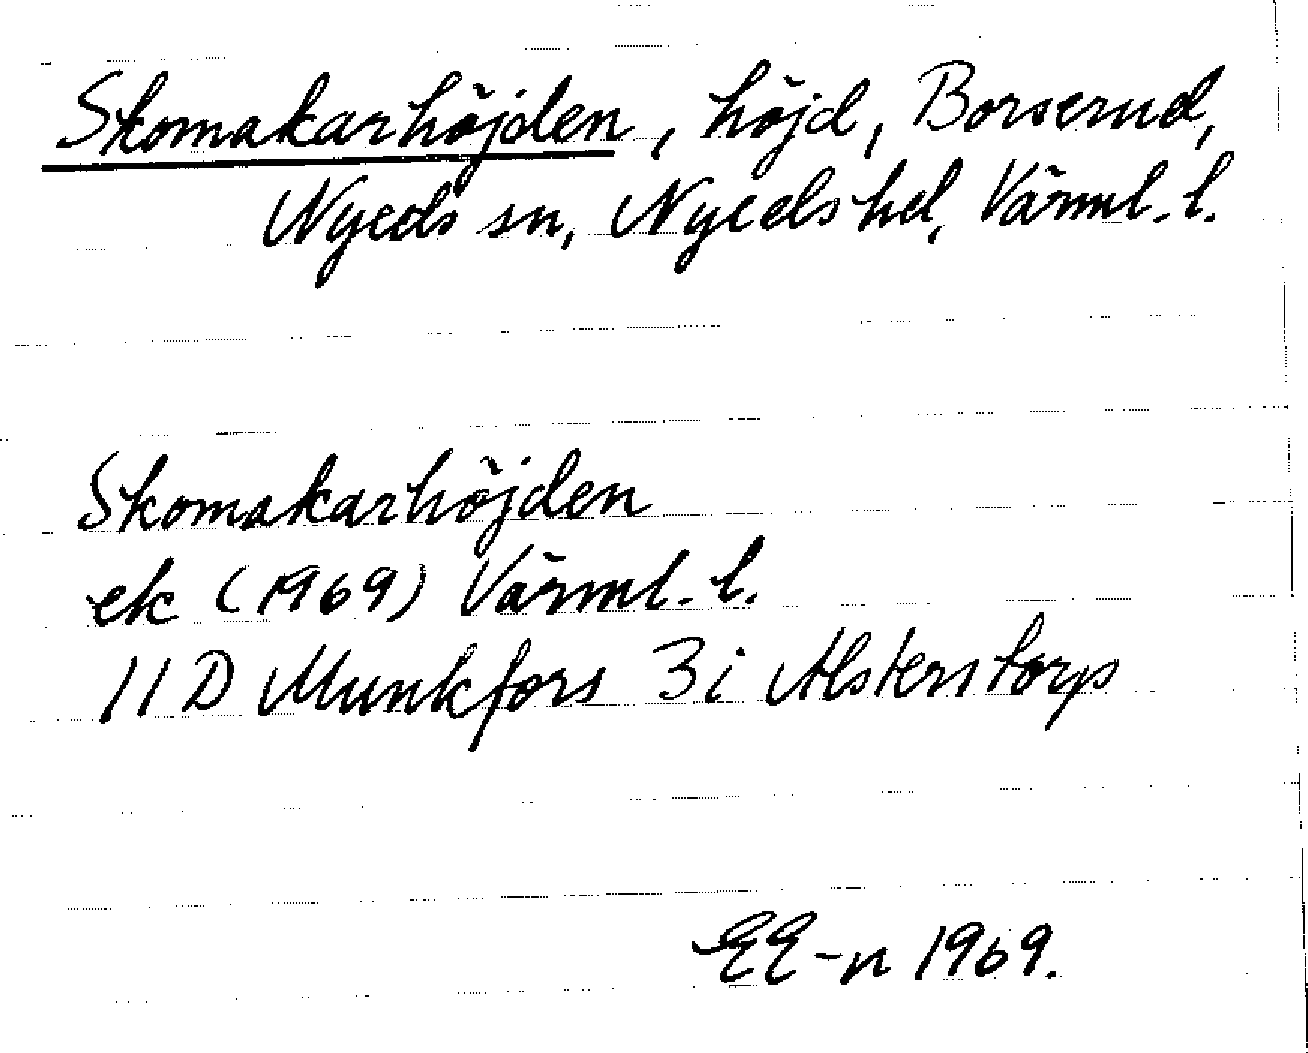 Skomakarhöjden, höjd, Borserud,
Nyeds sn, Nyeds hd, Värml. l.
Skomakarhöjden
ek (1969) Värml. l.
11D Munkfors 3i Alsterstorp
EE-n 1969.